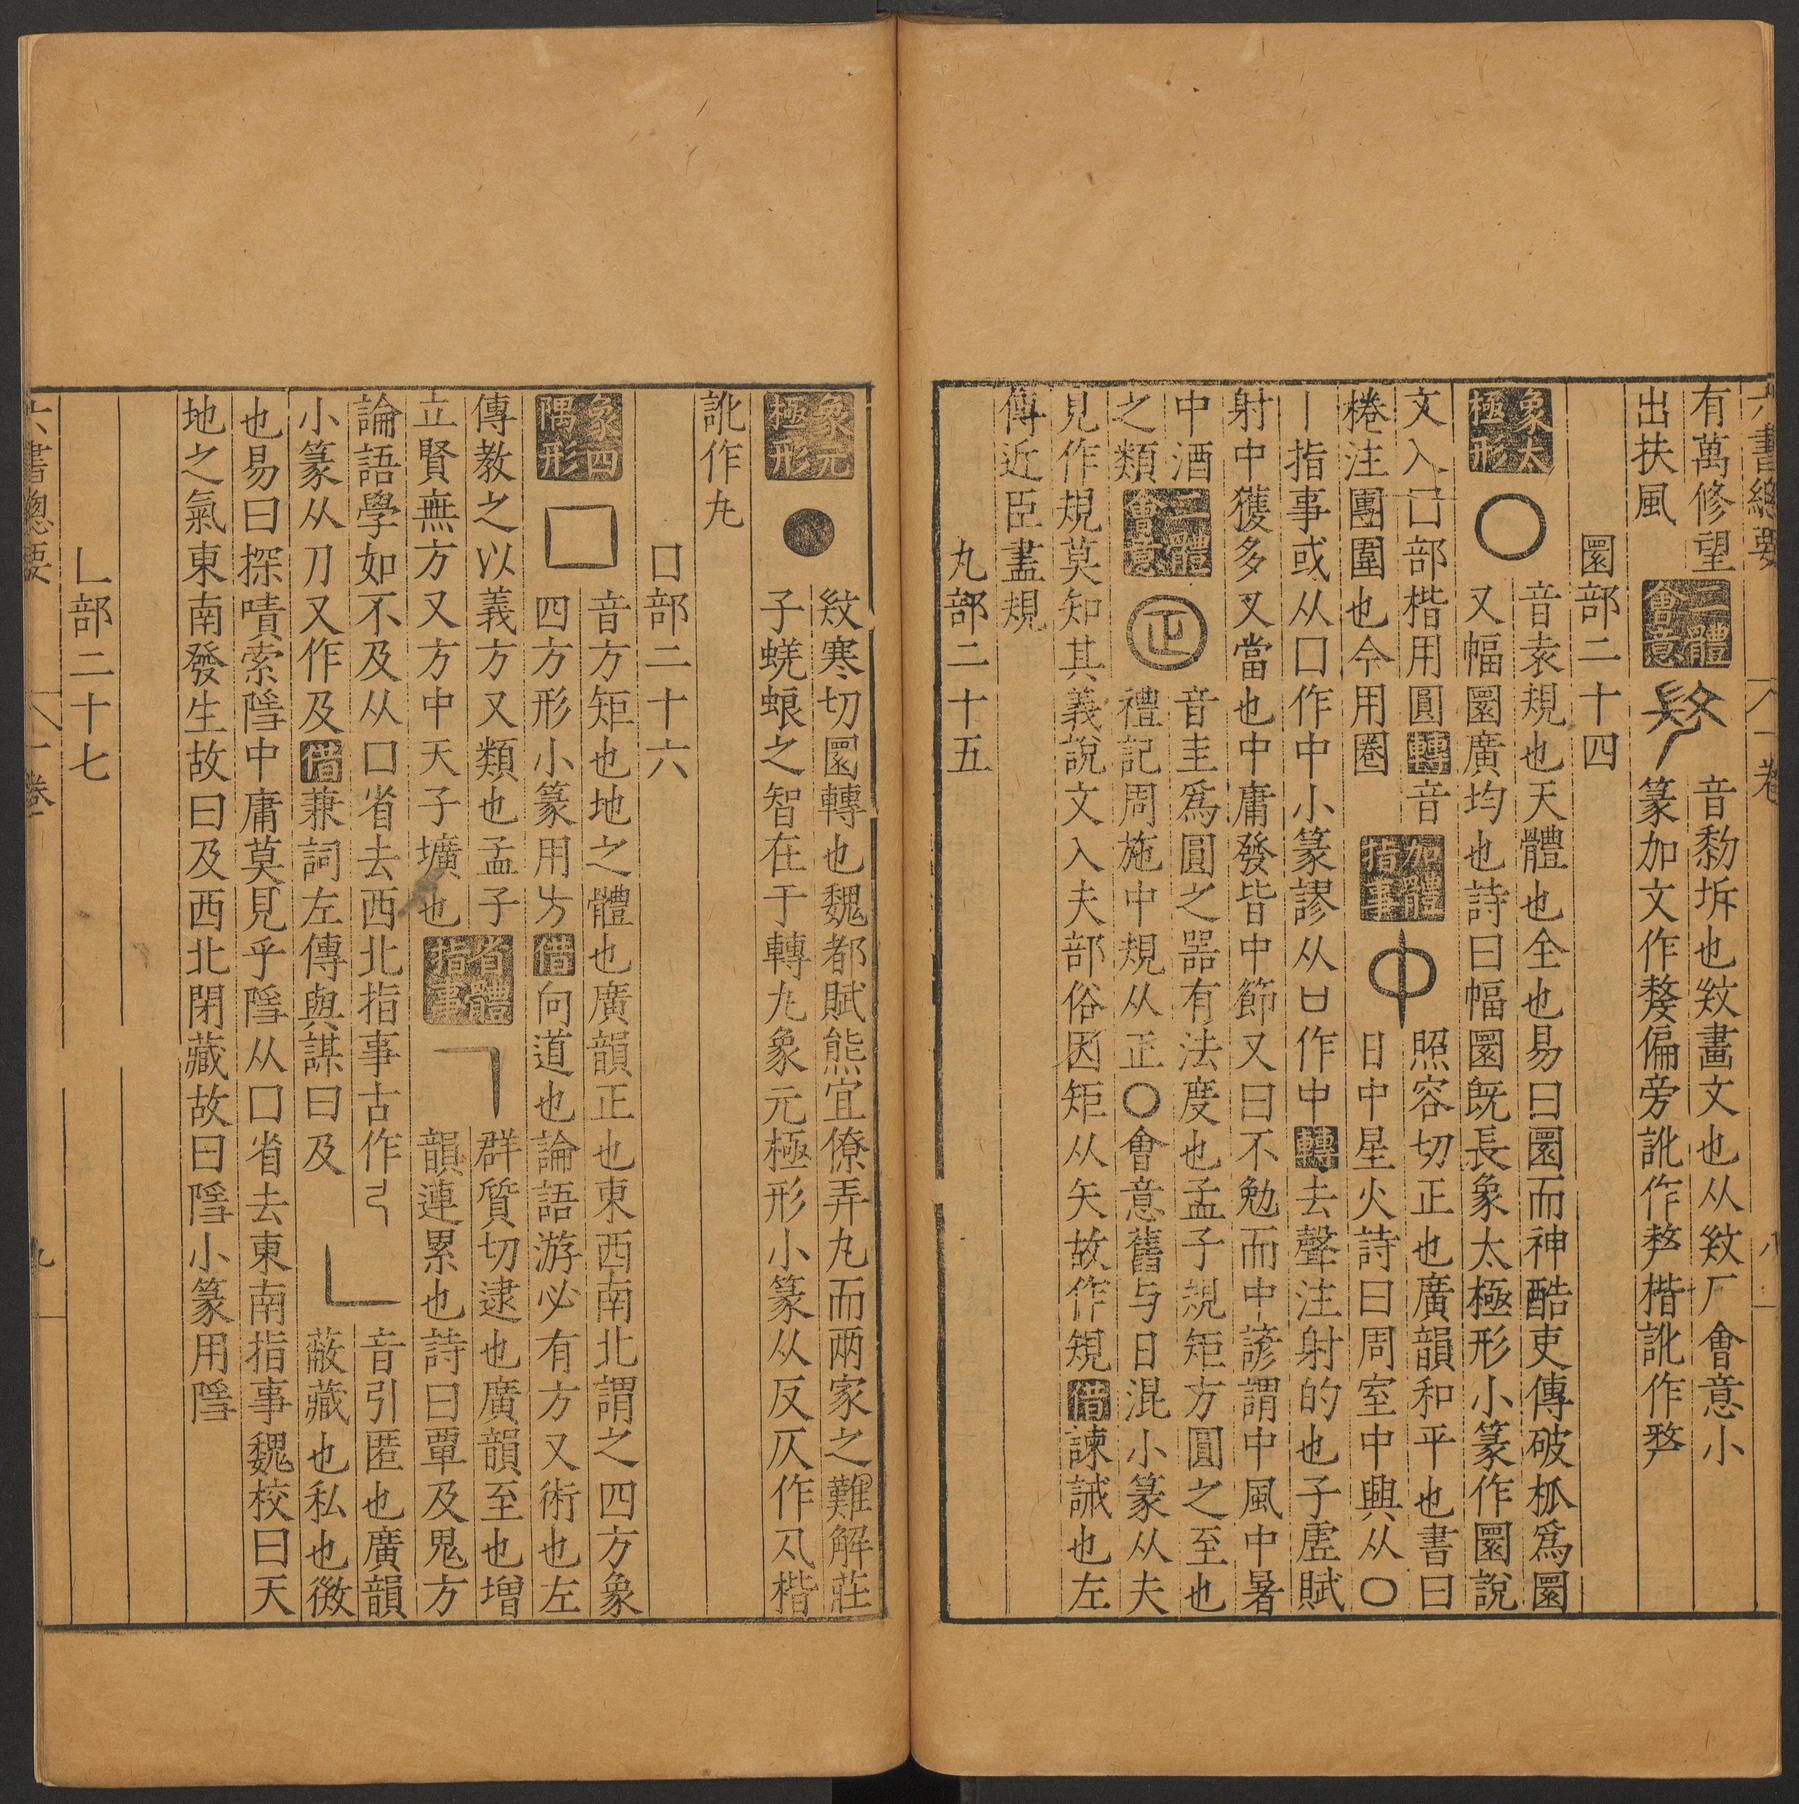 六書總要 一卷 八
有萬修望
出扶風
二體會意
音勑坼也𢻹畫文也从𢻹厂會意小
篆加文作嫠偏旁訛作𠩺楷訛作𠩺
圜部二十四
象太極形
〇
音袁規也天體也全也易曰圜而神酷吏傳破觚爲圜
又幅圜廣均也詩曰幅圜既長象太極形小篆作圜說
文入囗部楷用圓轉音
棬注團圍也今用圈
加體指事
照容切正也廣韻和平也書曰
日中星火詩曰周室中興从〇
丨指事或从囗作中小篆謬从𠙵作中轉去聲注射的也子虛賦
射中獲多又當也中庸發皆中節又曰不勉而中諺謂中風中暑
中酒
之類
二體會意
音圭爲圓之器有法度也孟子規矩方圓之至也
禮記周旋中規从正〇會意舊与日混小篆从夫
見作規莫知其義說文入夫部俗因矩从矢故作䂓借諫誡也左
傳近臣盡規
丸部二十五
象元極形
●
紋寒切圜轉也魏都賦熊宜僚弄丸而兩家之難解莊
子蜣蜋之智在于轉丸象元極形小篆从反仄作𠁽楷
訛作丸
口部二十六
象四隅形
音方矩也地之體也廣韻正也東西南北謂之四方象
四方形小篆用方借向道也論語游必有方又術也左
傳教之以義方又類也孟子
立賢無方又方中天子壙也
省體指事
群質切逮也廣韻至也增
韻連累也詩曰覃及鬼方
論語學如不及从囗省去西北指事古作
小篆从刀又作及借兼詞左傳與謀曰及
𠃊
音引匿也廣韻
蔽藏也私也微
也易曰探嘖索隱中庸莫見乎隱从囗省去東南指事魏校曰天
地之氣東南發生故曰及西北閉藏故曰隱小篆用隱
𠃊部二十七
六書總要 一卷 九